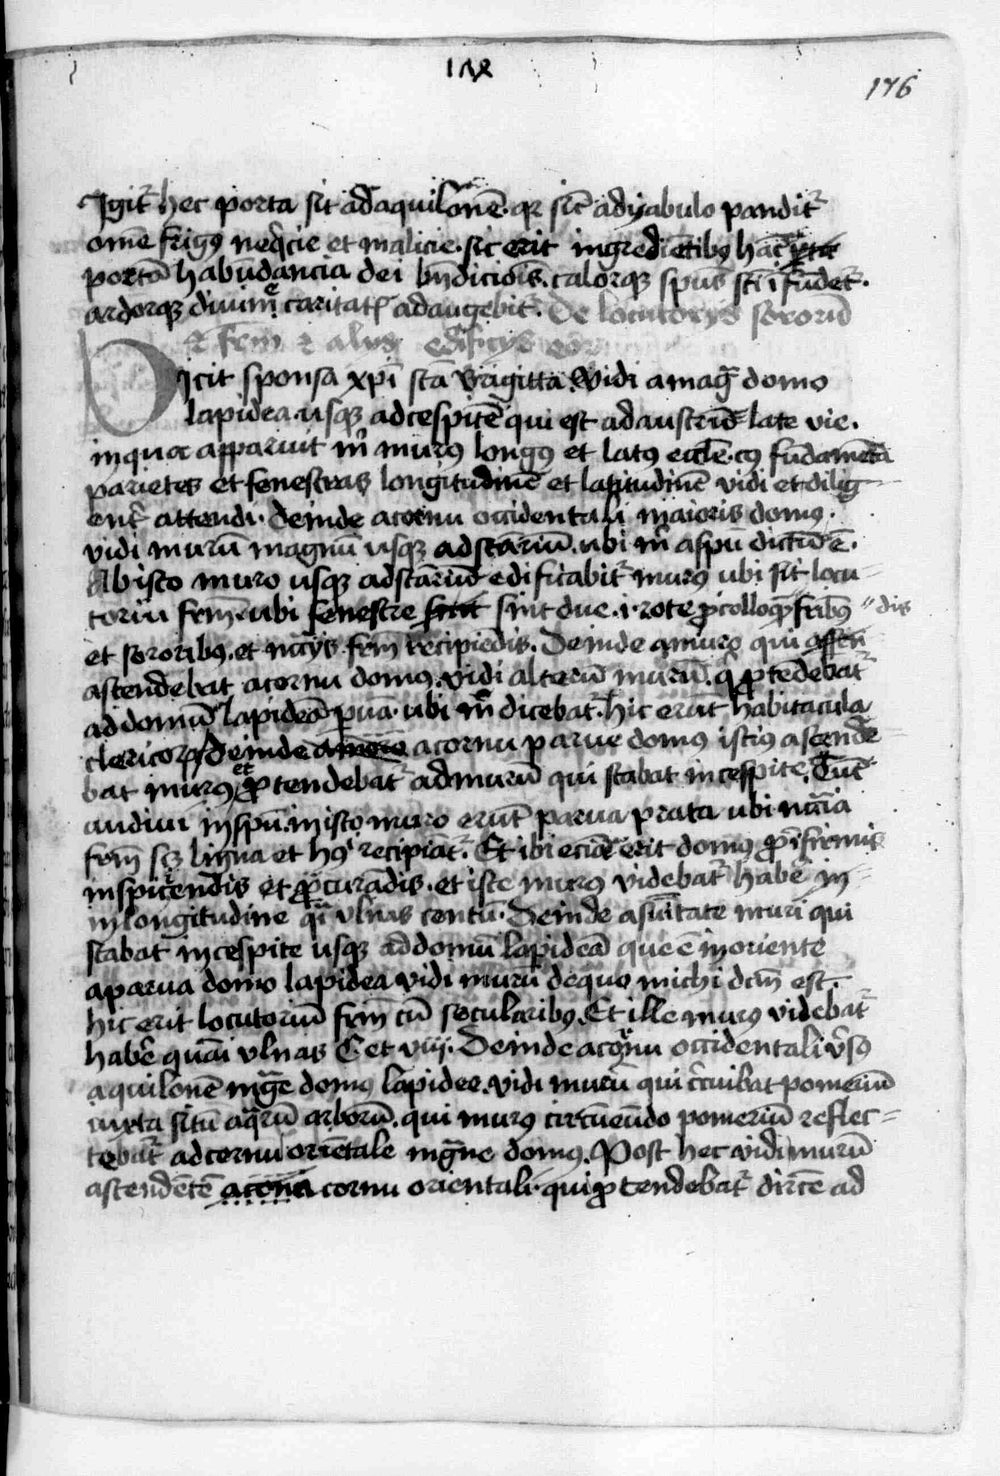 176
Igit᷑ hec porta sit ad aquilonē· q̄ sic̄ a dyabulo pandit᷑
om̄e frigꝯ neq̄cie et malicie· sic erit ingrediētibꝯ hāc
portā habūdancia dei bn̄dicīois· calorqꝫ spūs sc̄i īfūdet᷑·
ardorqꝫ diuine caritatꝭ adaugebit᷑· De locutorijs sororū
⁊ frm̄ ⁊ alijs edificijs
Dicit sponsa xp̄i sc̄a Brigitta Vidi a mag̃ domo
lapidea usqꝫ ad cespitē qui est ad austrū late vie·
in qua apparuit m̄ murꝯ longꝯ et latꝯ eccl̄e· cꝯ fūdamēta
parietes et fenestras longitudinē et latitudinē vidi et dilig
ent᷑ attendi· deinde a cornu occidentali maioris domꝯ·
vidi murū magnū usqꝫ ad stānū· ubi m̄ a spū dictū ē·
Ab isto muro usqꝫ ad stānū edificabit᷑ murꝯ ubi sit locu-
toriū frm̄· ubi fenestre sint due· i· rote ꝓ colloq̄ fr̄ibꝯ dis
et sororibꝯ· et nūcijs frm̄ recipiēdis· Deinde a muro qui
ascendebat a cornu domꝯ· vidi alterū murū· q̄ ꝓtēdebat᷑
ad domū lapideā ꝑuā· ubi m̄ dicebat᷑· hic erūt habitacula
clericoꝝ deinde a cornu parue domꝯ istiꝯ ascende
bat murꝯ et ꝓtendebat᷑ ad murū qui stabat in cespite· Tūc
audiui in spū· in isto muro erūt parua prata ubi
frm̄ scꝫ ligna et hꝯ recipiāt᷑· Et ibi eciā erit domꝯ ꝓ īfirmis
inspiciendis et ꝓcurādis· et iste murꝯ videbat᷑ habē in-
in longitudine q̄i vlnas centū· Deinde a sūitate muri qui
stabat in cespite usqꝫ ad domū lapideā que ē in oriente
a parua domo lapidea vidi murū de quo michi dcm̄ est·
hic erit locutoriū frm̄ cū secularibꝯ· Et ille murꝯ videbat᷑
habē quasi vlnas C et viij· Deinde a cornu occidentali v̄sꝯ
aquilonē mg̃e domꝯ lapidee· vidi murū qui c̄cuibat pomeriū
iuxta sitū aq̄rū arborū· qui murꝯ circūeūdo pomeriū reflec-
tebat᷑ ad cornu oriētale mg̃ne domꝯ· Post hec vidi murū
ascendētē a cornu orientali· qui ꝓtendebat᷑ dircē ad